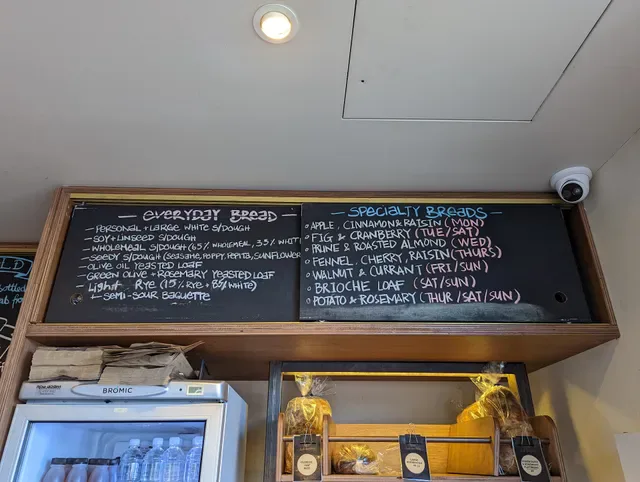 — EVERYDAY BREAD —
- PERSONAL + LARGE WHITE S/DOUGH
- SOY + LINSEED S/DOUGH
- WHOLEMEAL S/DOUGH (65% WHOLEMEAL, 35% WHITE
- SEEDY S/DOUGH (SEASAME, POPPY, PEPITA, SUNFLOWER
- OLIVE OIL YEASTED LOAF
- GREEN OLIVE + ROSEMARY YEASTED LOAF
- Light Rye (15% RYE + 85% WHITE)
- SEMI-SOUR BAGUETTE
— SPECIALTY BREADS —
• APPLE, CINNAMON & RAISIN (MON)
• FIG & CRANBERRY (TUE/SAT)
• PRUNE & ROASTED ALMOND (WED)
• FENNEL, CHERRY, RAISIN (THURS)
• WALNUT & CURRANT (FRI/SUN)
• BRIOCHE LOAF (SAT/SUN)
• POTATO & ROSEMARY (THUR/SAT/SUN)
BROMIC